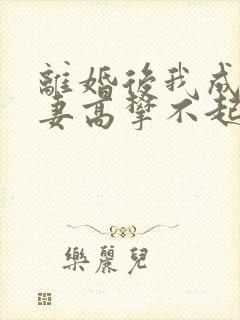 離婚後我成
妻高攀不起
樂麗兒